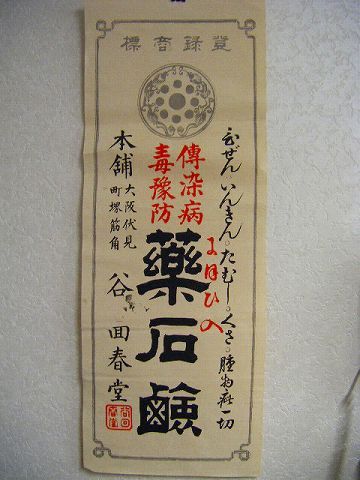 登録商標
ひぜん。いんきん。たむし。くさ。腫物疵一切
傳染病
毒豫防
藥石鹸
本舗
大阪伏見
町堺筋角
谷回春堂